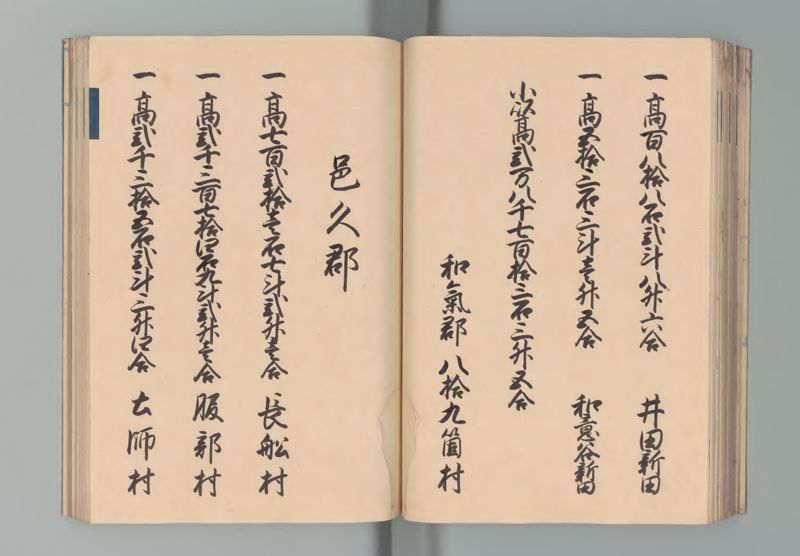 一高百八拾八石弐斗八升六合 井田新田
一高五拾三石三斗壱升五合 和意谷新田
小以高弐万八千七百拾三石三升五合
和氣郡 八拾九箇村
邑久郡
一高七百弐拾壱石七斗弐升壱合 長舩村
一高弐千三百七拾四石九斗弐升壱合 服部村
一高弐千三拾五石弐斗三升四合 土師村